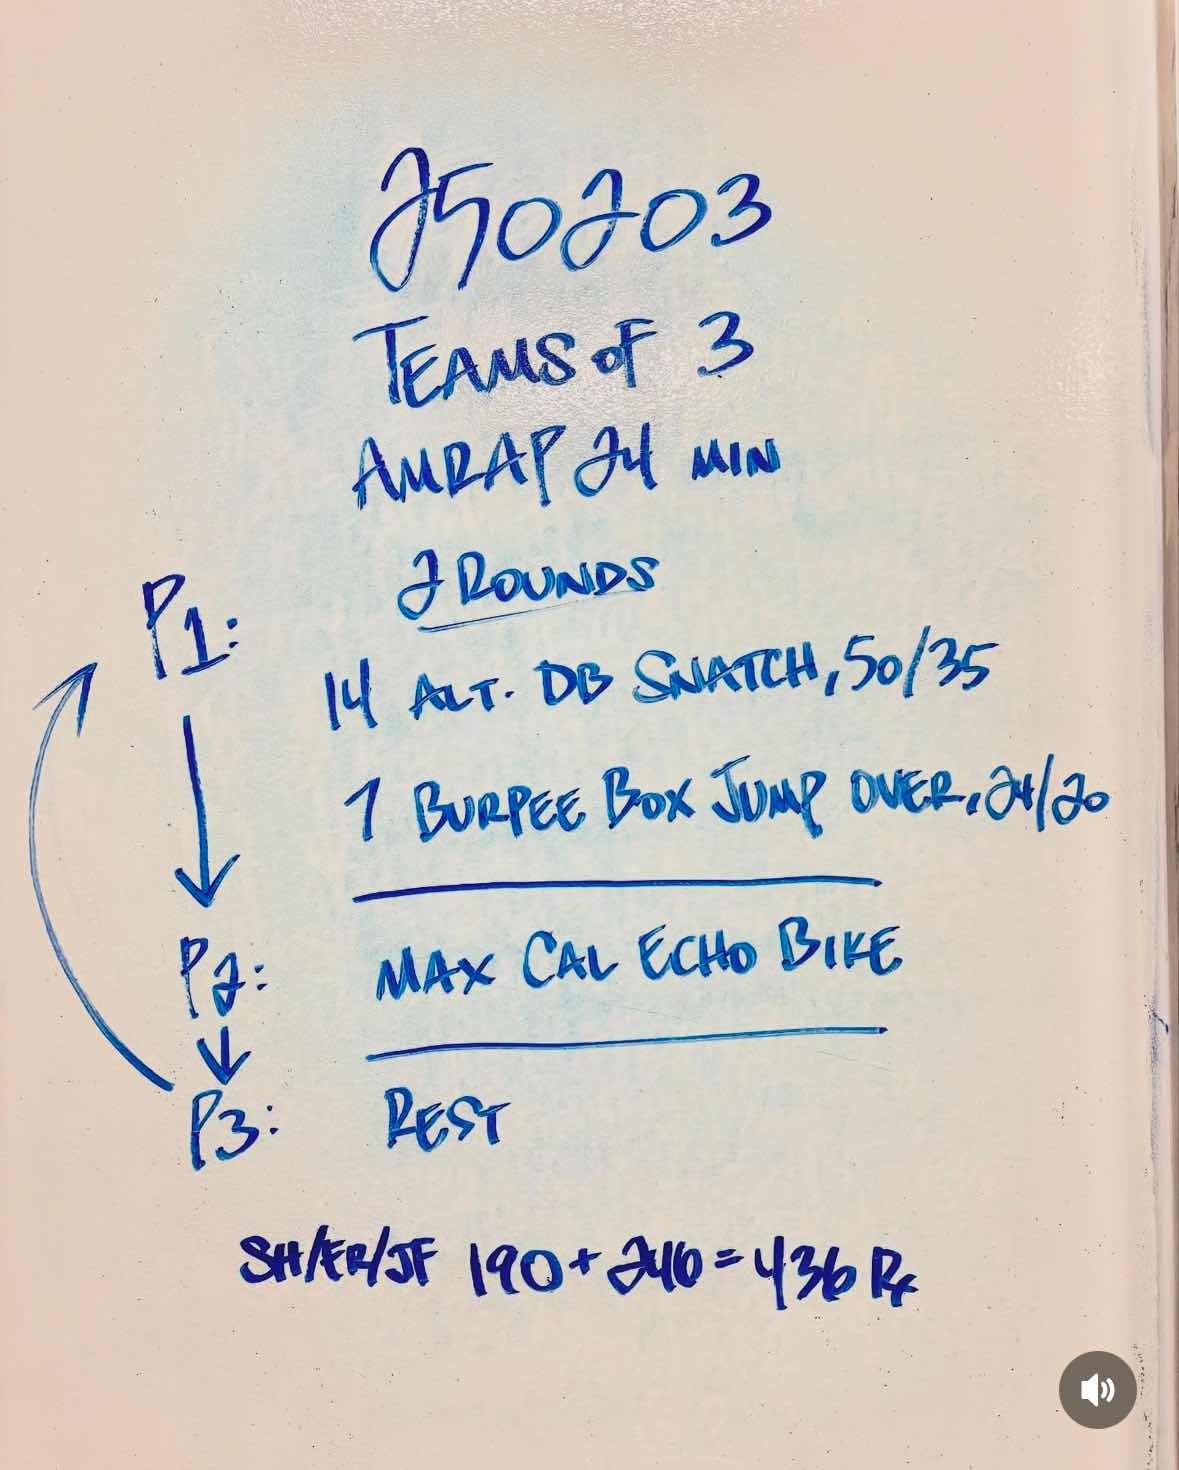 250203
TEAMS OF 3
AMRAP 24 MIN
P1: 2 ROUNDS
14 ALT. DB SNATCH, 50/35
7 BURPEE BOX JUMP OVER, 24/20
P2: MAX CAL ECHO BIKE
P3: REST
SH/ER/JF 190 + 246 = 436 Rx